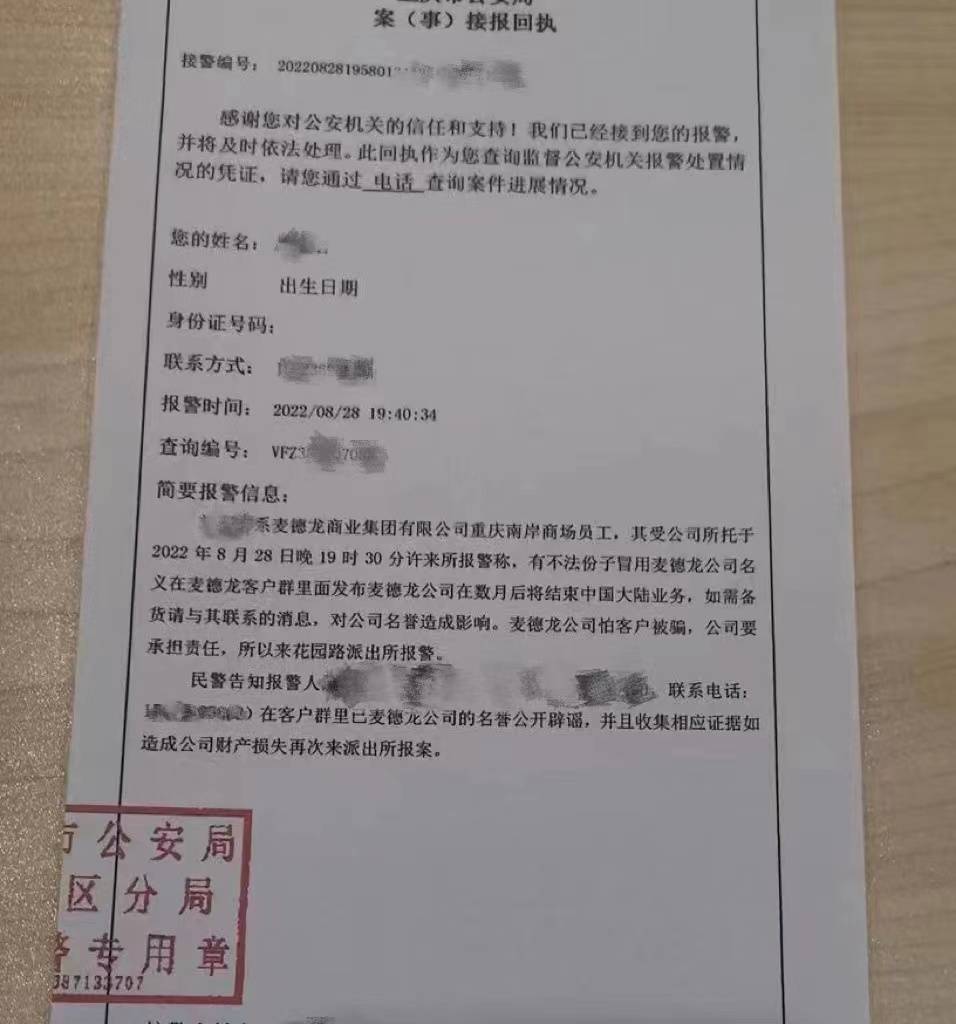 案（事）接报回执
接警编号： 20220828195801
感谢您对公安机关的信任和支持！我们已经接到您的报警，
并将及时依法处理。此回执作为您查询监督公安机关报警处置情
况的凭证，请您通过 电话 查询案件进展情况。
您的姓名：
性别 出生日期
身份证号码：
联系方式：
报警时间： 2022/08/28 19:40:34
查询编号： VFZ3
简要报警信息：
系麦德龙商业集团有限公司重庆南岸商场员工，其受公司所托于
2022 年 8 月 28 日晚 19 时 30 分许来所报警称，有不法份子冒用麦德龙公司名
义在麦德龙客户群里面发布麦德龙公司在数月后将结束中国大陆业务，如需备
货请与其联系的消息，对公司名誉造成影响。麦德龙公司怕客户被骗，公司要
承担责任，所以来花园路派出所报警。
民警告知报警人 联系电话：
）在客户群里已麦德龙公司的名誉公开辟谣，并且收集相应证据如
造成公司财产损失再次来派出所报案。
市公安局
区分局
专用章
387133707